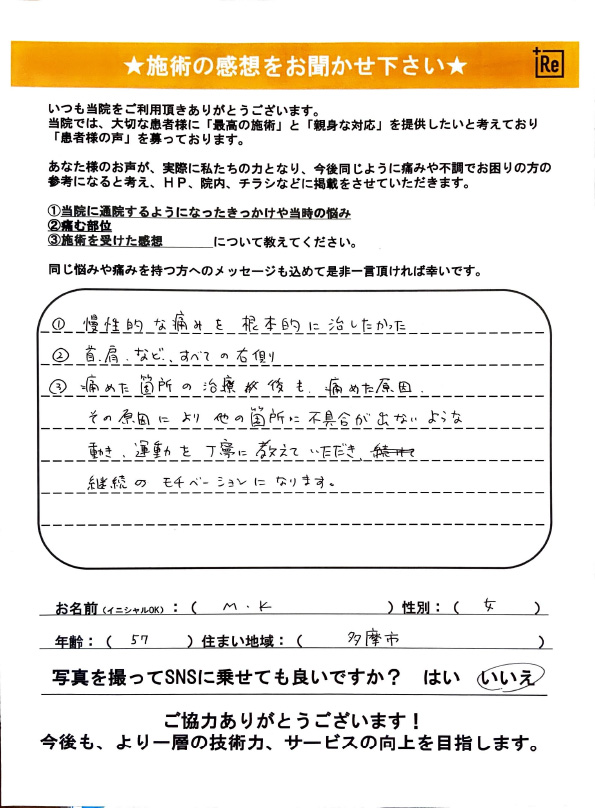 ★施術の感想をお聞かせ下さい★
+Re
いつも当院をご利用頂きありがとうございます。
当院では、大切な患者様に「最高の施術」と「親身な対応」を提供したいと考えており
「患者様の声」を募っております。
あなた様のお声が、実際に私たちの力となり、今後同じように痛みや不調でお困りの方の
参考になると考え、ＨＰ、院内、チラシなどに掲載をさせていただきます。
①当院に通院するようになったきっかけや当時の悩み
②痛む部位
③施術を受けた感想 について教えてください。
同じ悩みや痛みを持つ方へのメッセージも込めて是非一言頂ければ幸いです。
① 慢性的な痛みを 根本的に治したかった
② 首、肩、など、すべての右側
③ 痛めた箇所の治療後も、痛めた原因、
その原因により他の箇所に不具合が出ないような
動き、運動を丁寧に教えていただき、
継続のモチベーションになります。
お名前(イニシャルOK)：（ M・K ）性別：（ 女 ）
年齢：（ 57 ）住まい地域：（ 多摩市 ）
写真を撮ってSNSに乗せても良いですか？ はい いいえ
ご協力ありがとうございます！
今後も、より一層の技術力、サービスの向上を目指します。